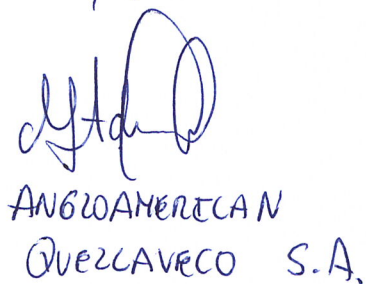 ANGLOAMERICAN
QUELLAVECO S.A.